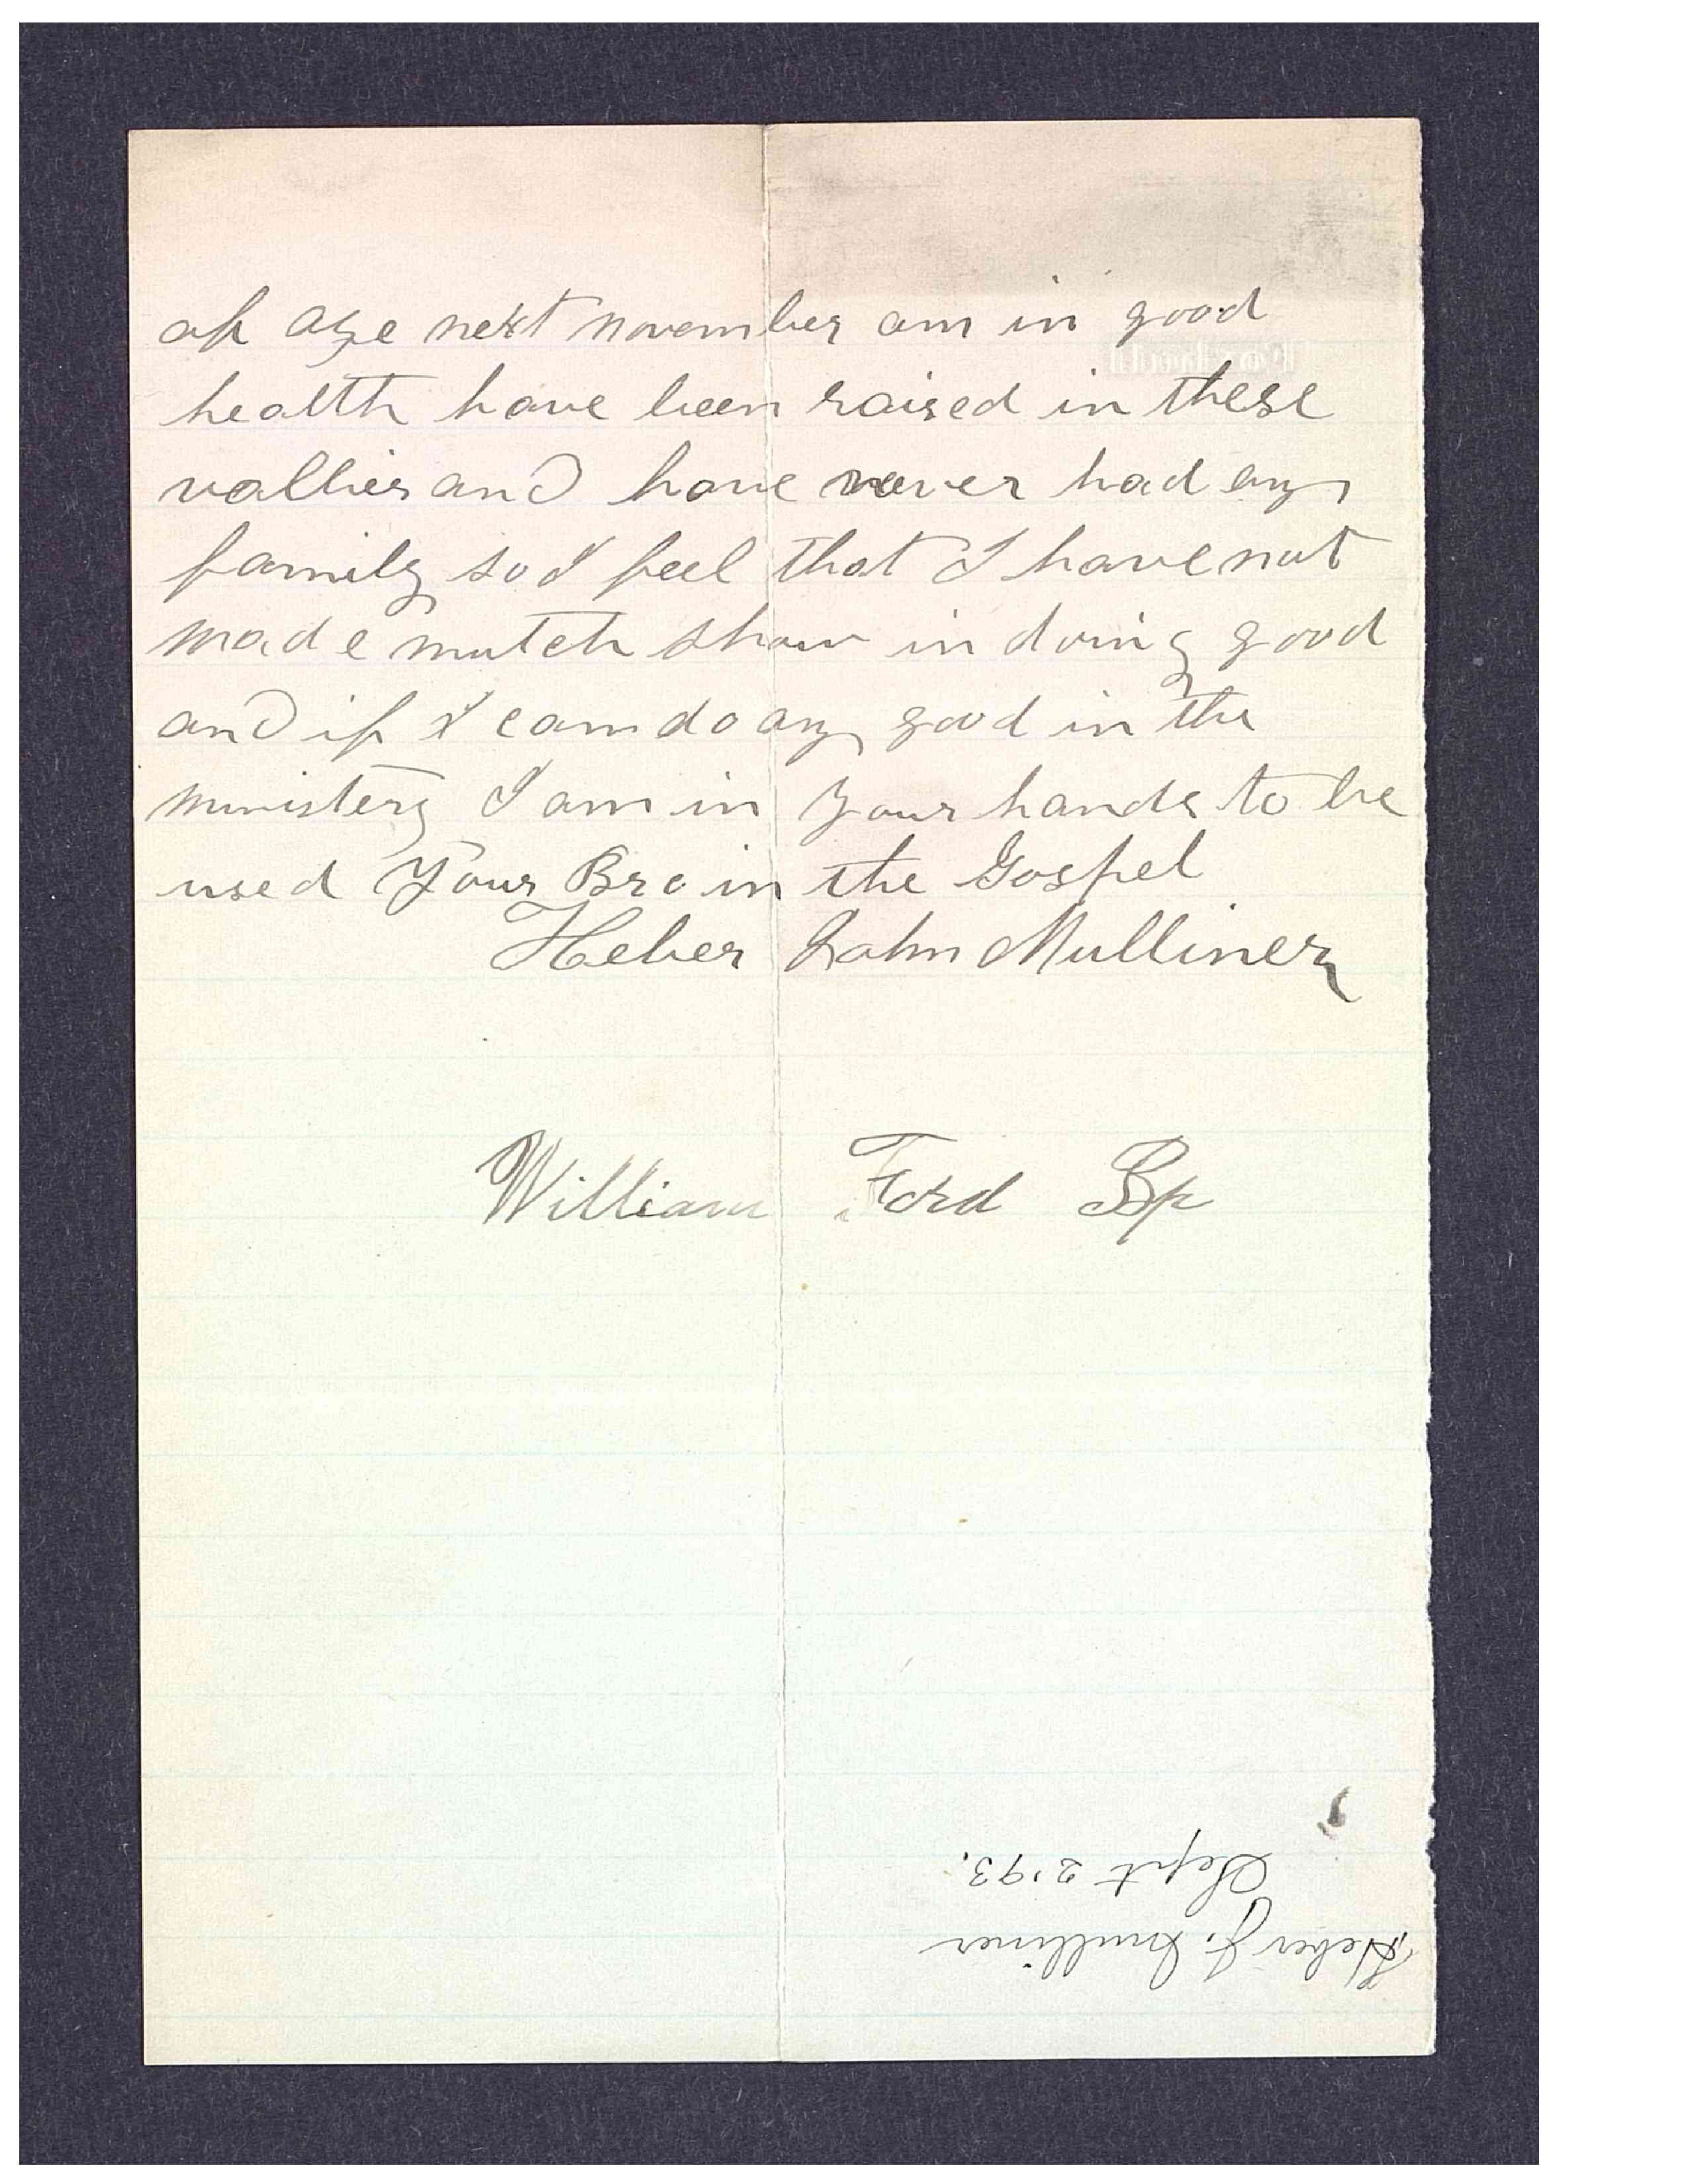 of age next november am in good
health have been raised in these
vallies and have never had eny
family so I feel that I have not
made mutch show in doing good
and if I cam do any good in the
ministery I am in your hands to be
used Your Bro in the Gospel
Heber John Mulliner
William Ford Bp
Heber J. Mulliner
Sept 2 '93.